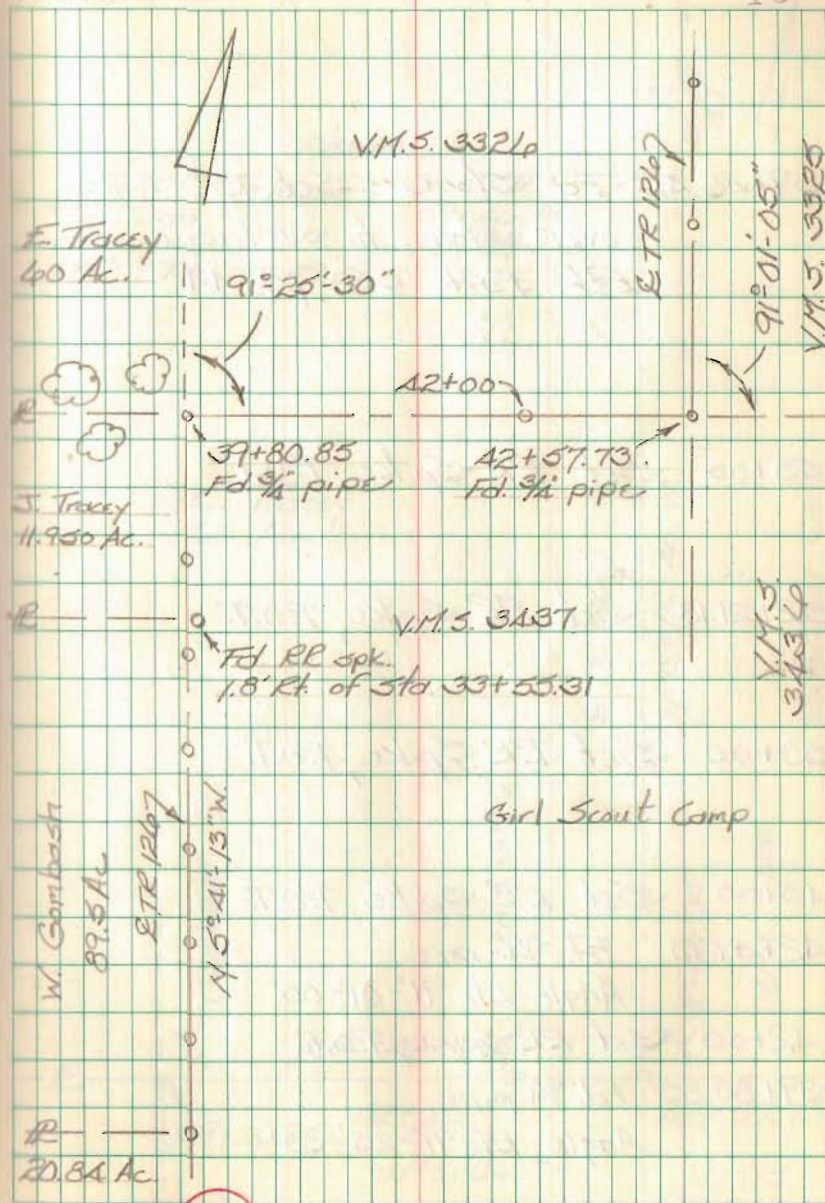 V.M.S. 3326
℄ TR 1267
E. Tracey
60 Ac.
91°-25'-30"
91°-01'-05"
V.M.S. 3325
42+00
℄
39+80.85
Fd. 3/4" pipe
42+57.73
Fd. 3/4" pipe
J. Tracey
11.950 Ac.
℄
V.M.S. 3437
V.M.S.
3436
Fd RR spk.
1.8' Rt. of Sta 33+55.31
Girl Scout Camp
W. Gombash
89.5 Ac
℄ TR 1267
N. 5°-41'-13" W.
℄
20.84 Ac.